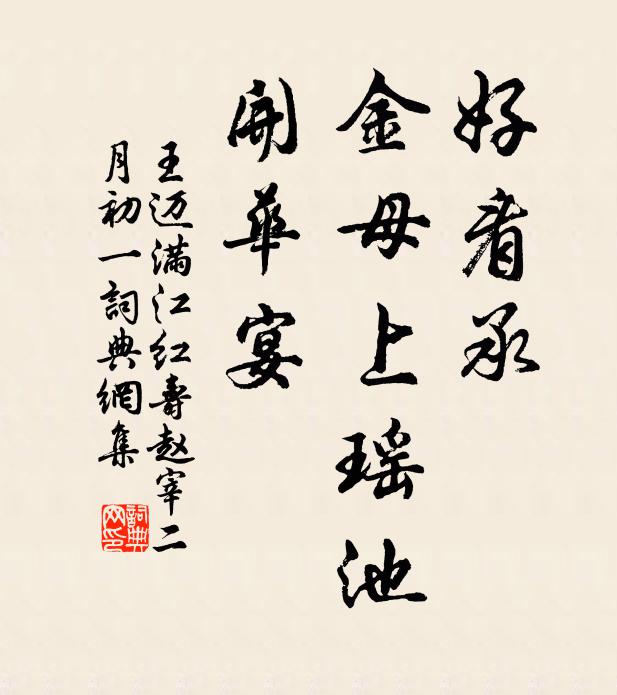 好看承
金母上瑶池
開華宴
王迈满江红壽赵宰二
月初一詞典網集
詞典
网印